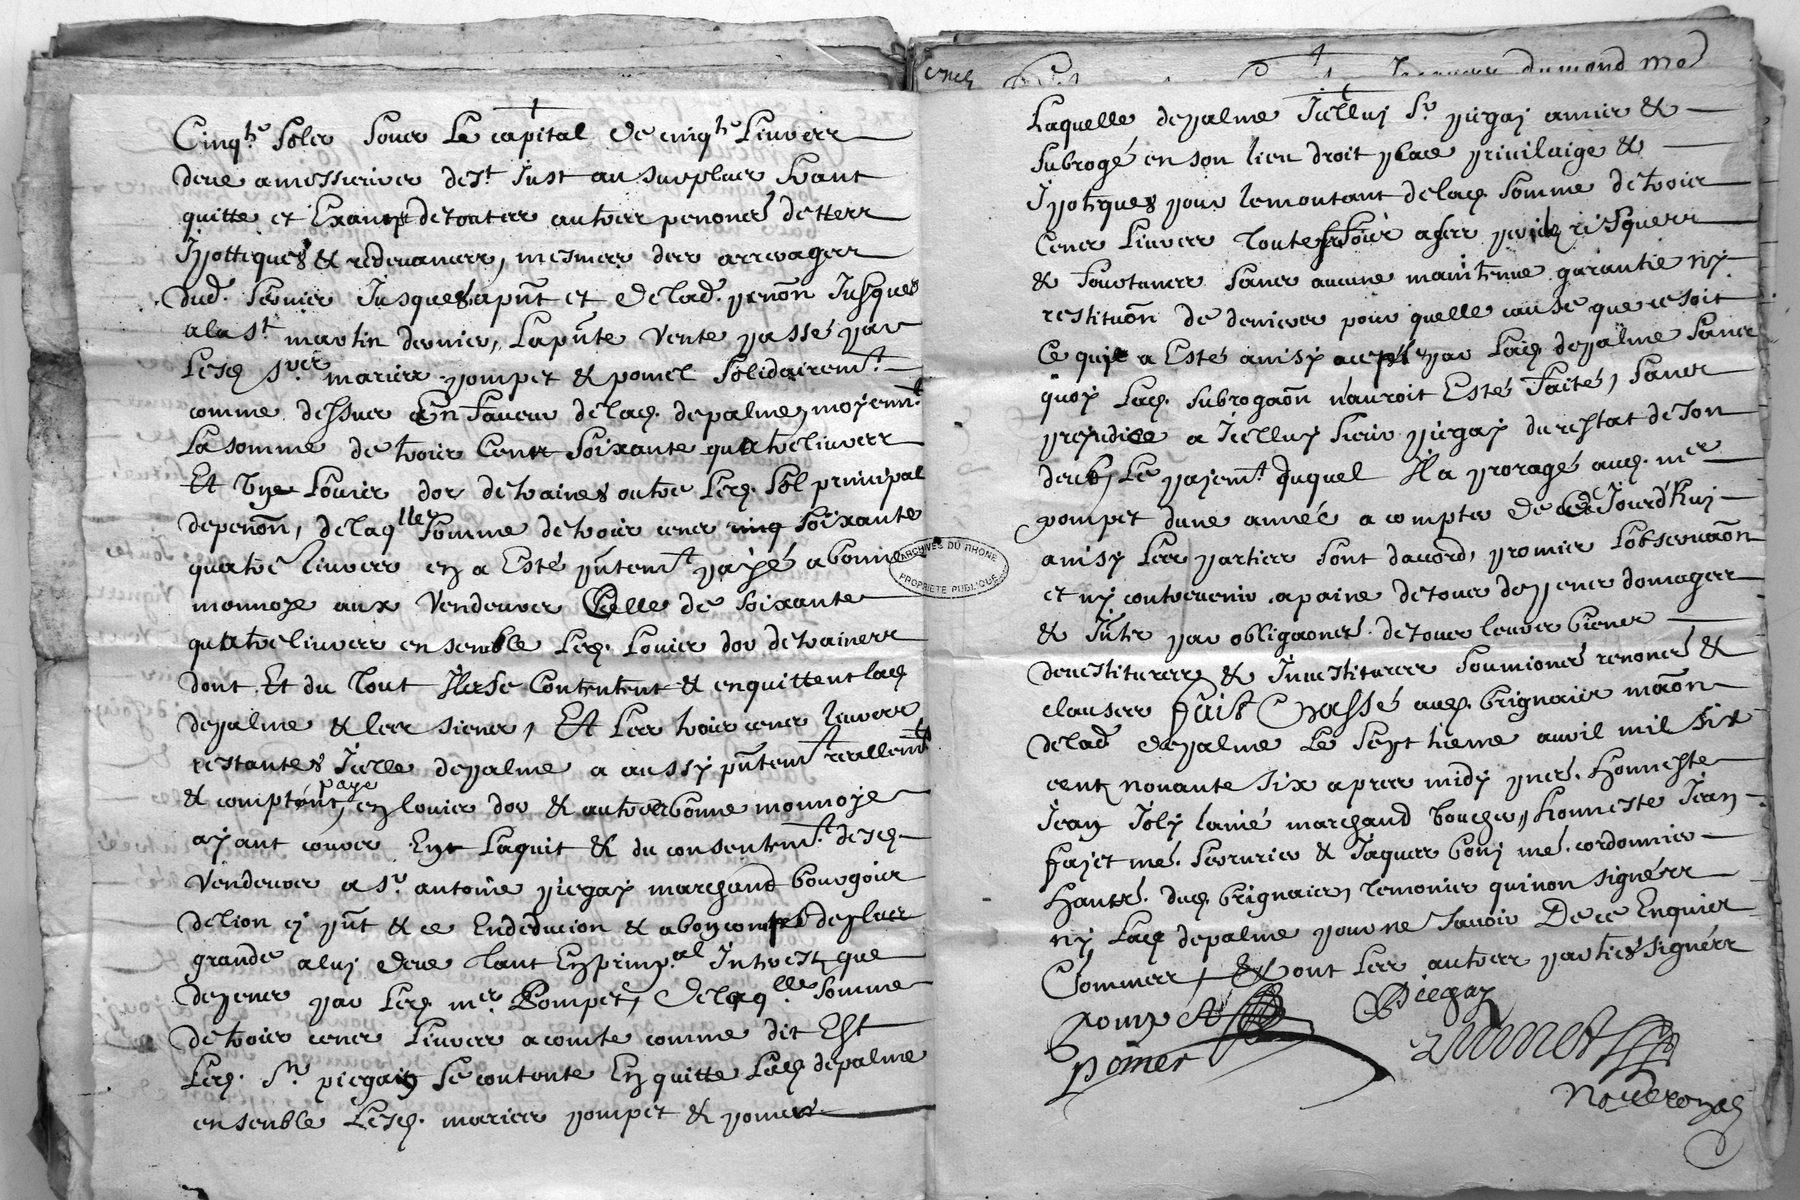 Cinqte solz soubz le capital de cinqte Livvres
deue a messieurs de St Just au surplus franc
quitte et Exampt de toutes autres penons dettes
Ipottiques & redevances, mesmes des arrerages
dud. servis Jusques a pnt et de lad. penon Jusques
a la St martin dernier, La pnte vente passé par
Lesd srs maries pompet & pomel solidairemt
comme dessus En faveur de lad. depalme, moyennt
La somme de trois Cents soixante quatre livvres
Et Une Louis dor detraines outre Led. sol principal
de penon, de laqlle somme de trois cens soixante
quatre livvres en a Esté pntemt payé a bonne
monnoye aux Vendeurs Celle de soixante
quatre livvres ensemble Led. Louis dor detraines
dont Et du tout Ils se Contentent & en quittent lad
depalme & les siens, Et Les trois cens livvres
restantes Icelle depalme a aussy pntemt reallemt
& comptant paye en louis dor & autre bonne monnoye
ayant cours En Laquit & du consentemt desd
Vendeurs a sr. antoine piegay marchand bourgois
de lion cy pnt & ce En deducion & a bon compte de plus
grande a luy deue tant En prinp.al Intrest que
depens par Led mer Pompet, De laqlle somme
de trois cens Livvres a comte comme dit Est
Led. Sr. piegay se contente En quitte Lad depalme
ensemble Lesd. maries pompet & pomel
ARCHIVES DU RHONE
PROPRIETE PUBLIQUE
dumond me
Laquelle depalme Icelluy Sr. piegay a mise &
subrogé en son lieu droit place privilaige &
Ipotiques pour le montant de lad. somme de trois
Cens Livvres toutesfois a ses perilz risques
& fortunes sans aucune maintenue garantie ny
restituon de deniers pour quelle cause que ce soit
Ce quil a Esté ainsy accepté par Lad depalme sans
quoy Lad. subrogaon n'auroit Esté faite, sans
prejudice a Icelluy sieur piegay du restat de son
deub, Le payemt duquel Il a prorogé aud. mer
pompet dune année a compter de ce Jourd'huy
ainsy Les parties sont dacord, promis Lobservaon
et ny contrevenir a paine de tous depens domages
& Intr par obligaons de tous leurs biens
devestitures & Investitures soumions renons &
clauses fait & passé aud. brignais maon
de lad depalme Le sept tieme avril mil six
cent nonante six apres midy pns. Honneste
Jean Joly lainé marchand boucher, honneste Jean
fayet me. serrurier & Jaques bony me. cordonnier
Hants. dud. brignais, temoins qui non signés
ny Lad depalme pour ne savoir De ce Enquis
Sommes, Et ont Les autres parties signés
Pompet
Piegay
Pomel
No.re royal